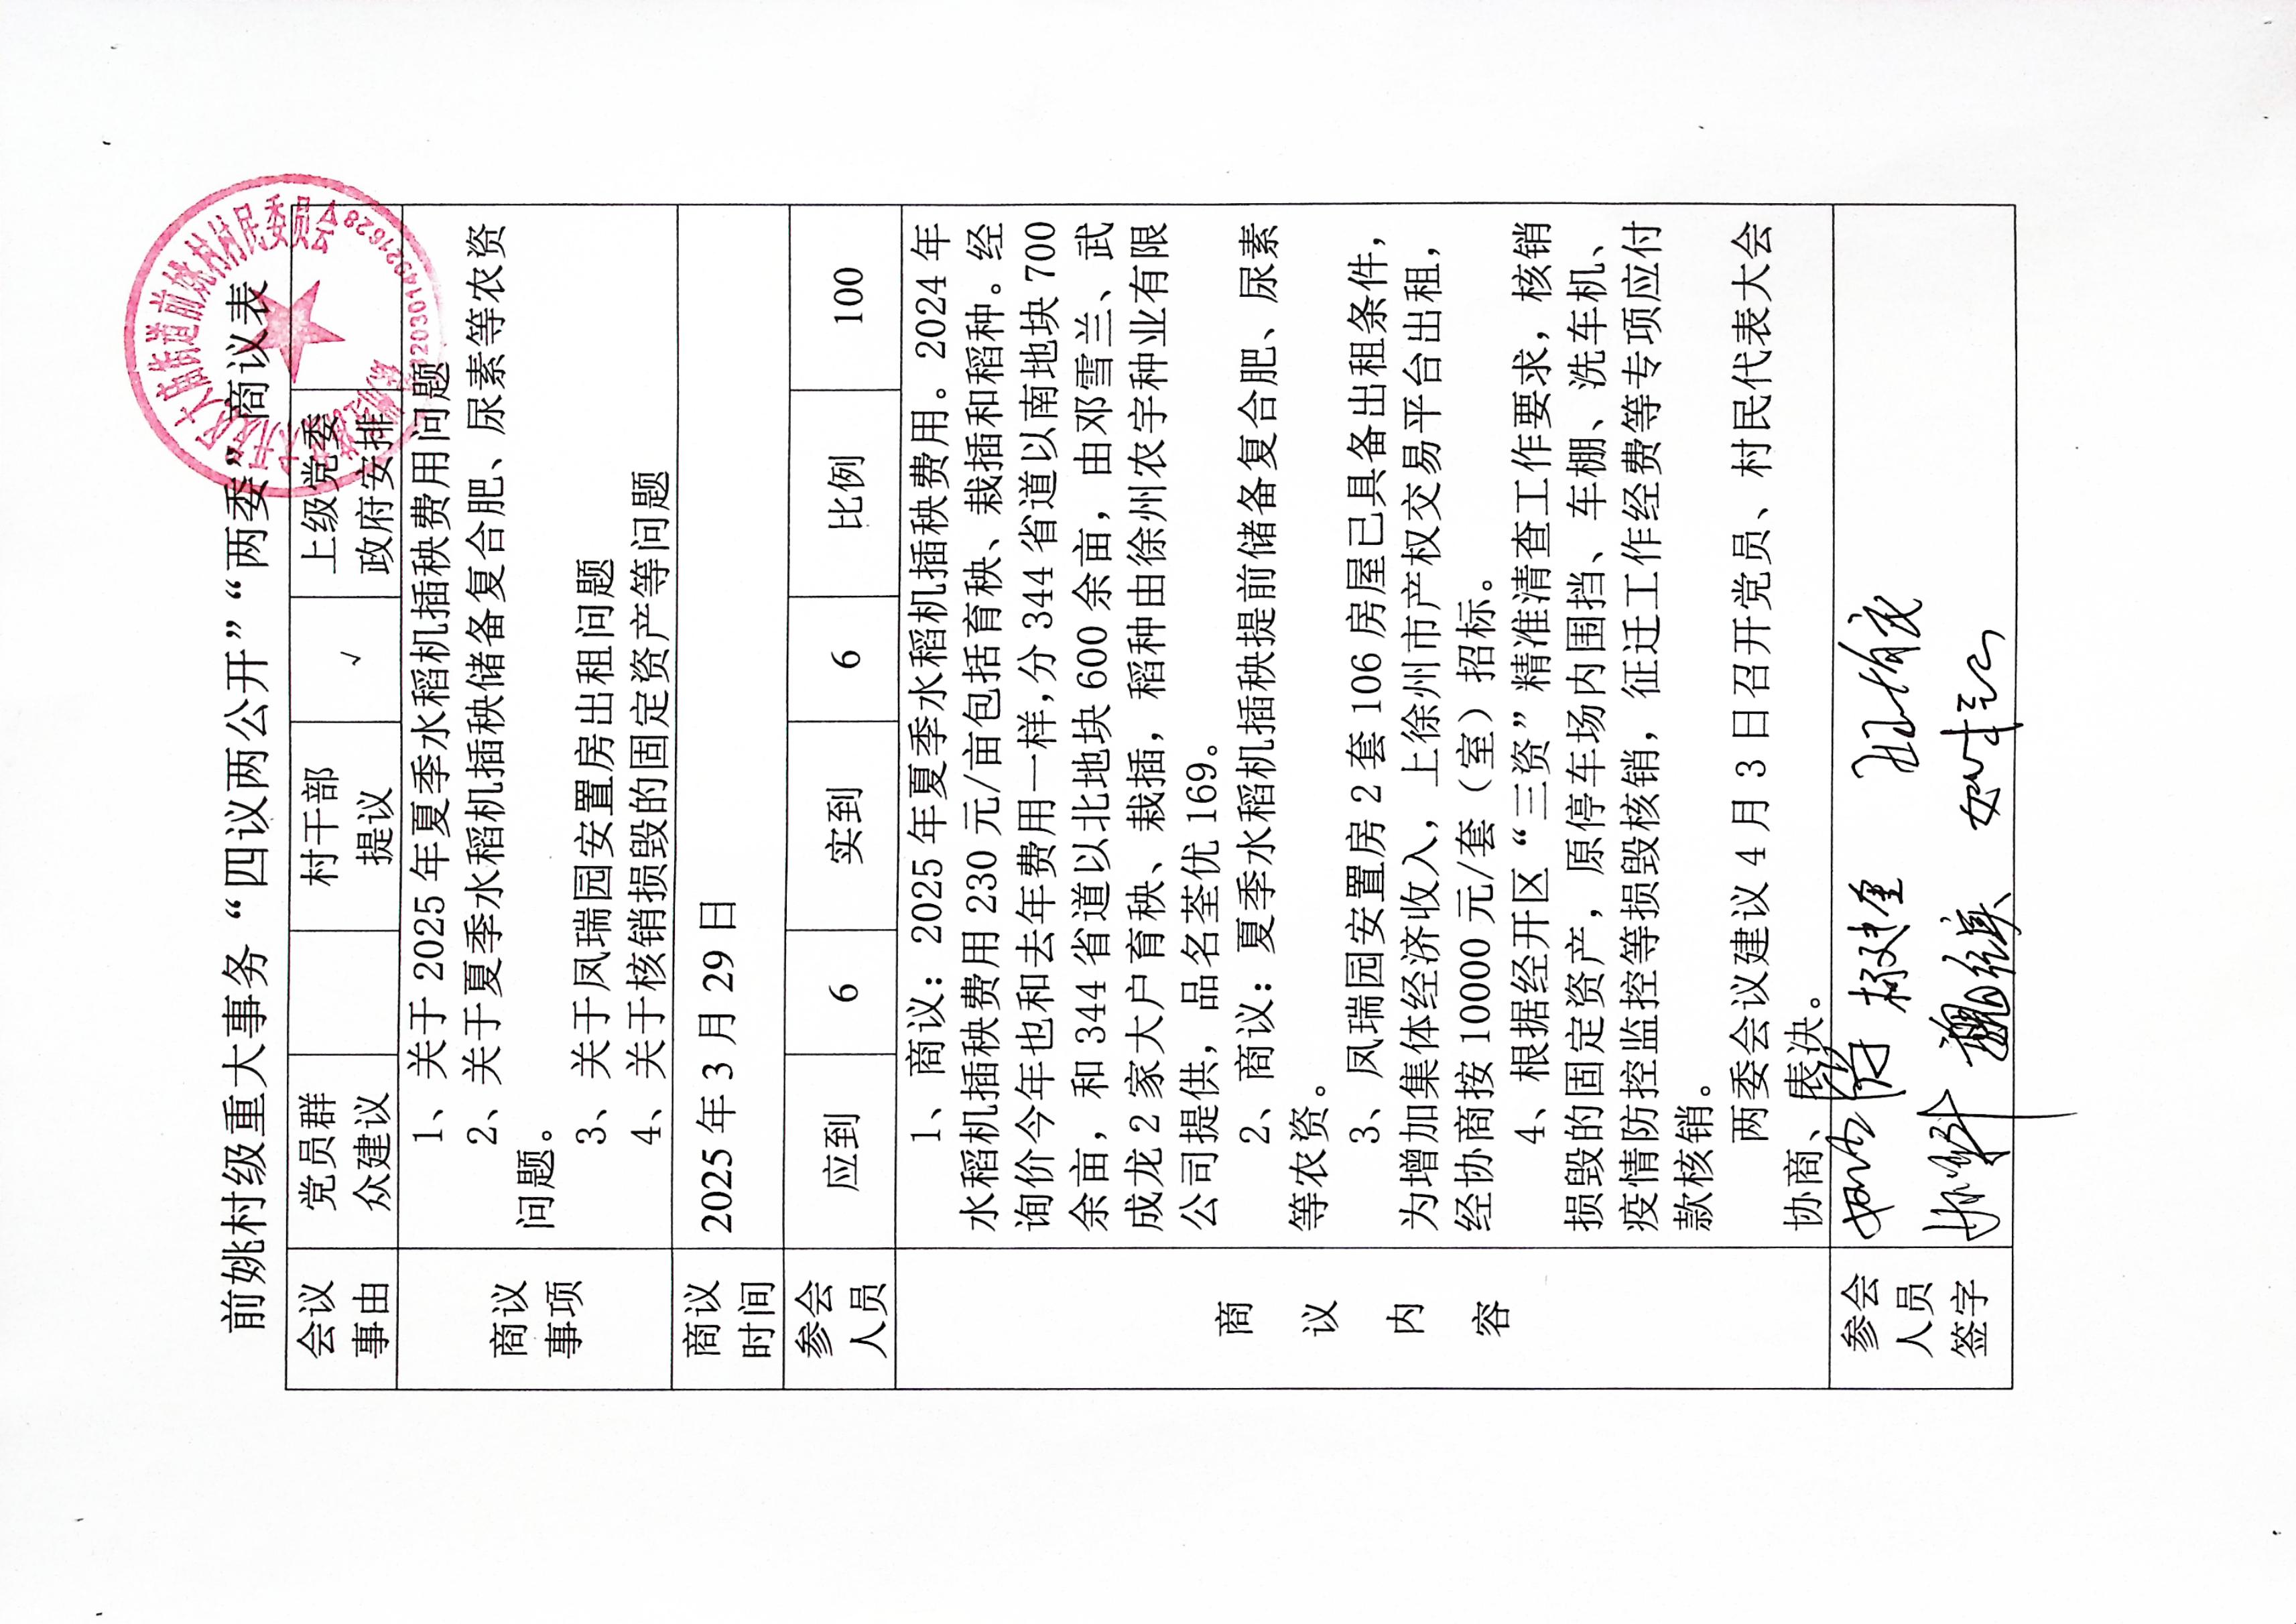 前姚村级重大事务“四议两公开”“两委”商议表
会议事由 党员群众建议 村干部提议 √ 上级党委政府安排
商议事项
1、关于 2025 年夏季水稻机插秧费用问题
2、关于夏季水稻机插秧储备复合肥、尿素等农资
问题。
3、关于凤瑞园安置房出租问题
4、关于核销损毁的固定资产等问题
商议时间 2025 年 3 月 29 日
参会人员 应到 6 实到 6 比例 100
商议内容
1、商议：2025 年夏季水稻机插秧费用。2024 年
水稻机插秧费用 230 元/亩包括育秧、栽插和稻种。经
询价今年也和去年费用一样,分 344 省道以南地块 700
余亩，和 344 省道以北地块 600 余亩，由邓雪兰、武
成龙 2 家大户育秧、栽插，稻种由徐州农宇种业有限
公司提供，品名荃优 169。
2、商议：夏季水稻机插秧提前储备复合肥、尿素
等农资。
3、凤瑞园安置房 2 套 106 房屋已具备出租条件，
为增加集体经济收入，上徐州市产权交易平台出租，
经协商按 10000 元/套（室）招标。
4、根据经开区“三资”精准清查工作要求，核销
损毁的固定资产，原停车场内围挡、车棚、洗车机、
疫情防控监控等损毁核销，征迁工作经费等专项应付
款核销。
两委会议建议 4 月 3 日召开党员、村民代表大会
协商、表决。
参会人员签字
大庙街道前姚村村民委员会